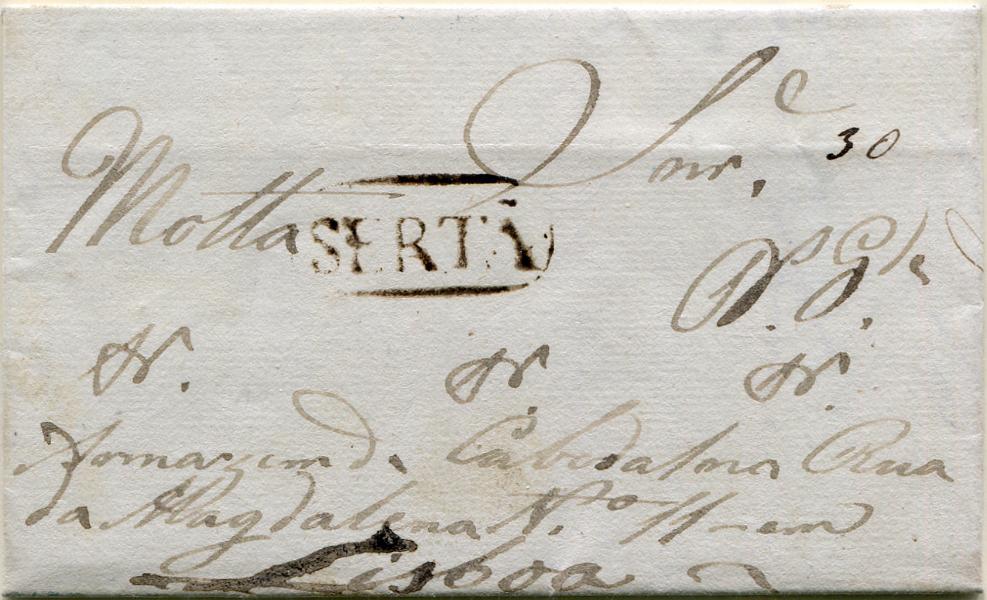 Snr,
30
Motta
SERTÃ
N. N. N.
Armazem de Cabedal na Rua
da Magdalena N.º 11 - em
Lisboa